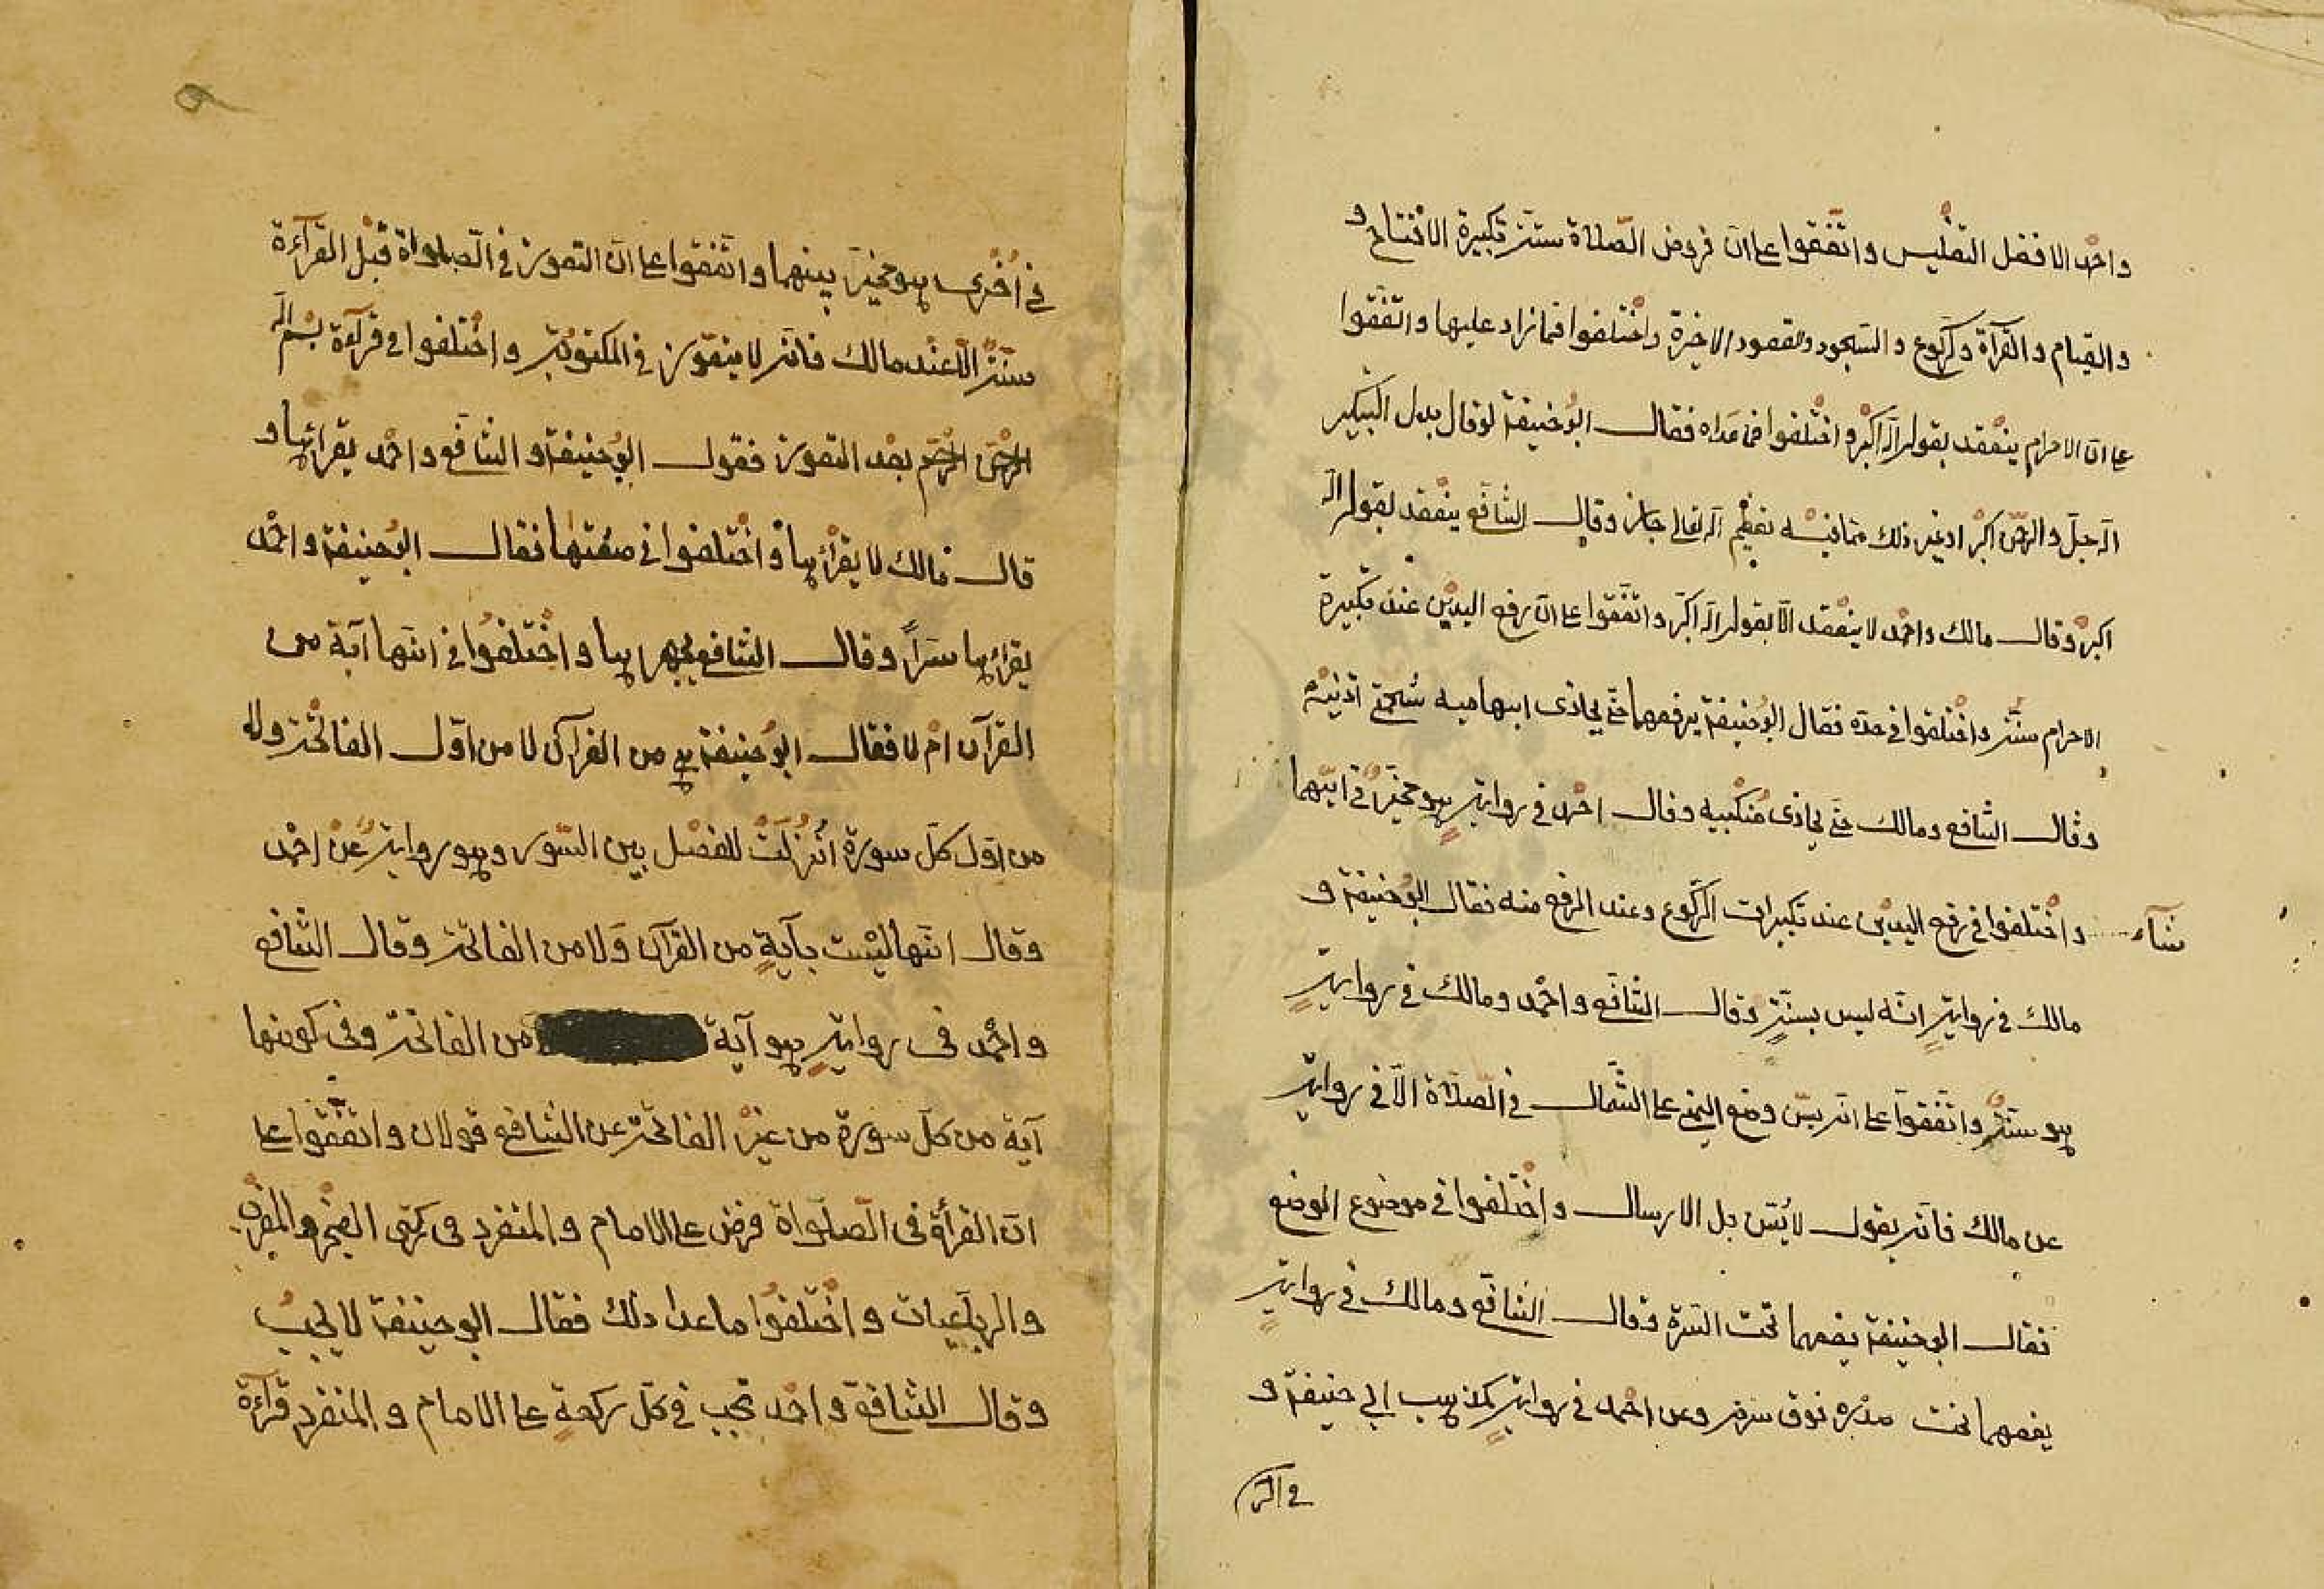 واحمد الافضل التغليس واتّفقوا على ان فروض الصّلاة ستة تكبيرة الافتتاح و
والقيام والقرآة وركوع والسّجود والقعود الاخيرة واختلفوا فيما زاد عليها واتفقوا
على ان الاحرام ينعقد بقوله الله اكبر واختلفوا فيما عداه فقال ابوحنيفة لو قال بدل التكبير
الله جلّ والرحمن اكبر او غير ذلك ممّا فيه تعظيم الله تعالى جاز وقال الشافعي ينعقد بقوله الله
اكبر وقال مالك واحمد لا ينعقد الّا بقوله الله اكبر واتّفقوا على انّ رفع اليدين عند تكبيرة
الاحرام سنّة واختلفوا في حدّه فقال ابوحنيفة يرفعهما حتّى يحاذى ابهاميه شحمتي اذنيه
وقال الشافعي ومالك حتّى يحاذى منكبيه وقال احمد في رواية هو مخيّر في ايّهما
شآء واختلفوا في رفع اليدين عند تكبيرات الرّكوع وعند الرفع منه فقال ابوحنيفة و
مالك في رواية انّه ليس بسنّة وقال الشافعي واحمد ومالك في رواية
هو سنّة واتّفقوا على انّه يسنّ وضع اليمنى على الشّمال في الصّلاة الّا في رواية
عن مالك فانّه يقول لا يُسنّ بل الارسال واختلفوا في موضوع الوضع
فقال ابوحنيفة يضعهما تحت السّرة وقال الشافعي ومالك في رواية
يضعهما تحت صدره فوق سرته وعن احمد في رواية كمذهب ابي حنيفة و
في اخرى هو مخيّر بينهما واتّفقوا على انّ التعوّذ في الصّلواة قبل القرآءة
سنّة الّا عند مالك فانّه لا يتعوّذ في المكتوبة واختلفوا في قرآءة بسم الله
الرّحمن الرّحيم بعد التعوّذ فقول ابوحنيفة والشافعي واحمد يقرائها و
قال مالك لا يقرائها واختلفوا في صفتها فقال ابوحنيفة واحمد
يقرائها سرّاً وقال الشافعي يجهر بها واختلفوا في انّها آية من
القرآن ام لا فقال ابوحنيفة هي من القرآن لا من اوّل الفاتحة ولا
من اوّل كلّ سورة انزلت للفصل بين السّور وهو رواية عن احمد
وقال انّها ليست بآية من القرآن ولا من الفاتحة وقال الشافعي
واحمد في رواية هو آية من الفاتحة وفي كونها
آية من كلّ سورة من غير الفاتحة عن الشافعي قولان واتّفقوا على
انّ القرأة في الصّلواة فرض على الامام والمنفرد في ركعتي الفجر
والرباعيات واختلفوا ما عدا ذلك فقال ابوحنيفة لا يجب
وقال الشافعي واحمد تجب في كلّ ركعة على الامام والمنفرد قرآءة